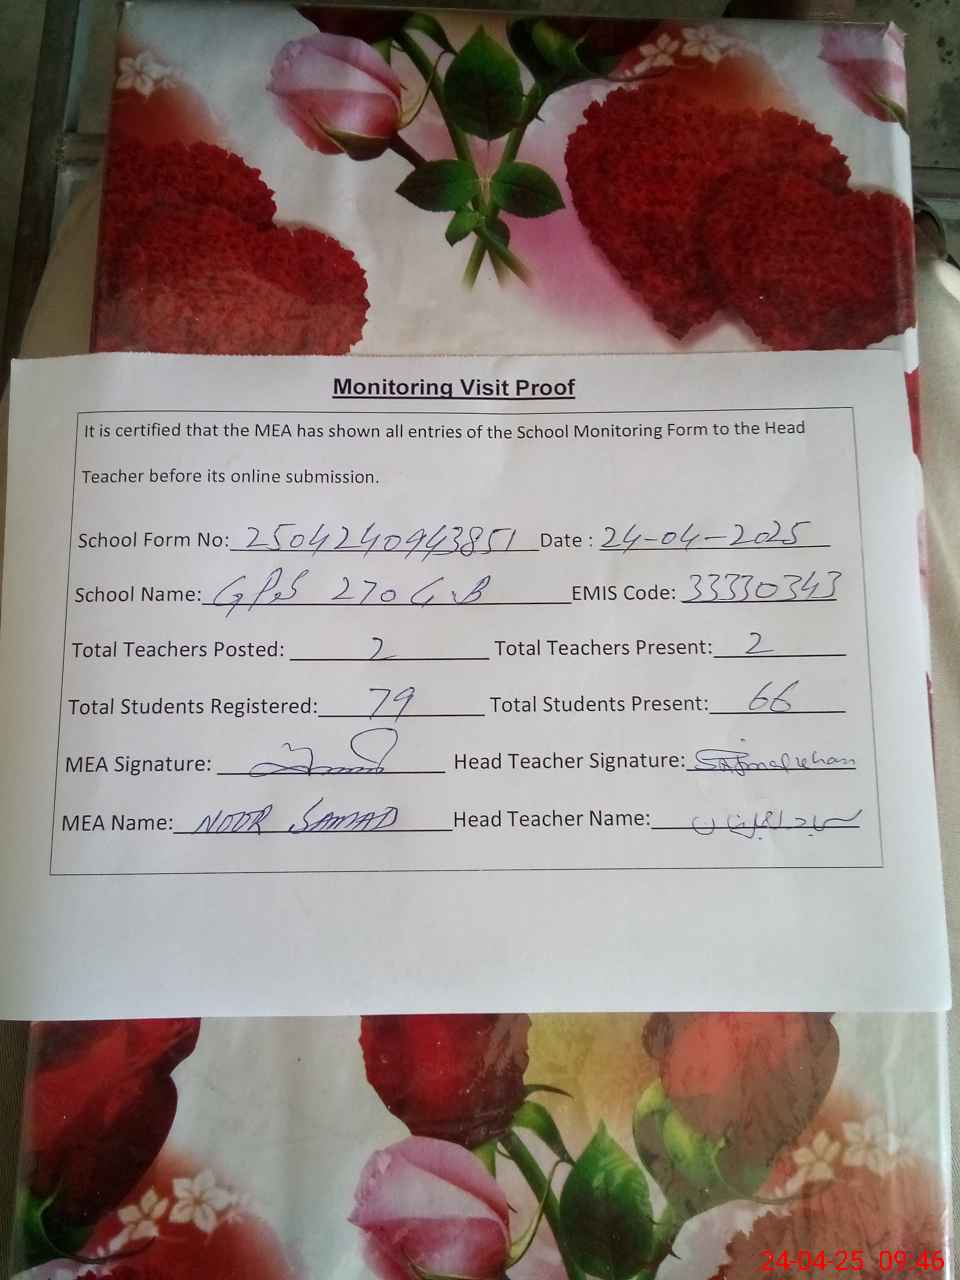 Monitoring Visit Proof
It is certified that the MEA has shown all entries of the School Monitoring Form to the Head
Teacher before its online submission.
School Form No: 2504240943851 Date : 24-04-2025
School Name: GPS 270 G.B EMIS Code: 33330343
Total Teachers Posted: 2 Total Teachers Present: 2
Total Students Registered: 79 Total Students Present: 66
MEA Signature: Head Teacher Signature:
MEA Name: NOOR SAMAD Head Teacher Name:
24-04-25 09:46